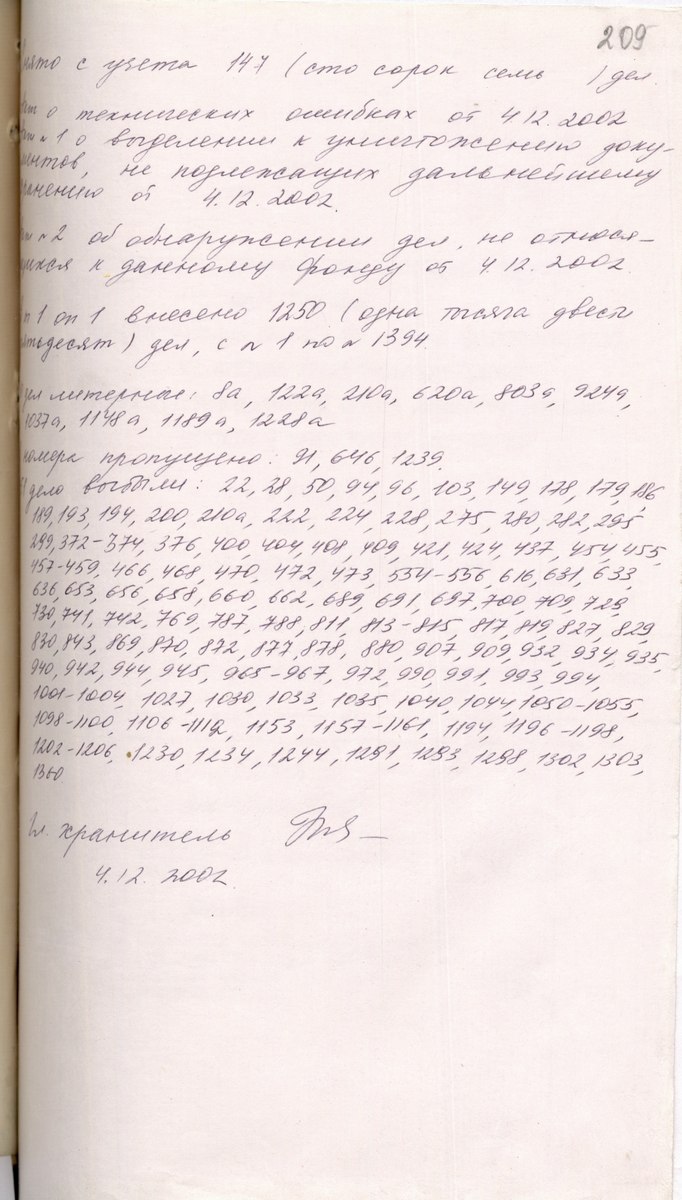 209
нято с учета 147 (сто сорок семь ) дел.
о технических ошибках от 4.12.2002
№1 о выделении к уничтожению доку-
ментов, не подлежащих дальнейшему
хранению от 4.12.2002.
№2 об обнаружении дел, не относя-
щихся к данному фонду от 4.12.2002
1 оп 1 внесено 1250 (одна тысяча двести
пятьдесят) дел, с № 1 по № 1394.
дел литерные: 8а, 122а, 210а, 620а, 803а, 924а,
1037а, 1148а, 1189а, 1228а
номера пропущено: 91, 646, 1239.
дело выбыли: 22, 28, 50, 94, 96, 103, 149, 178, 179, 186
189, 193, 194, 200, 210а, 222, 224, 228, 275, 280, 282, 295
299, 372-374, 376, 400, 404, 408, 409, 421, 424, 437, 454, 455,
457-459, 466, 468, 470, 472, 473, 554-556, 616, 631, 633,
636, 653, 656, 658, 660, 662, 689, 691, 697, 700, 709, 729,
730, 741, 742, 769, 787, 788, 811, 813-815, 817, 819, 827, 829,
830, 843, 869, 870, 872, 877, 878, 880, 907, 909, 932, 934, 935,
940, 942, 944, 945, 965-967, 972, 990, 991, 993, 994,
1001-1004, 1027, 1030, 1033, 1035, 1040, 1044, 1050-1055,
1098-1100, 1106-1112, 1153, 1157-1161, 1194, 1196-1198,
1202-1206, 1230, 1234, 1244, 1291, 1293, 1298, 1302, 1303,
1360
Гл. хранитель
4.12.2002.